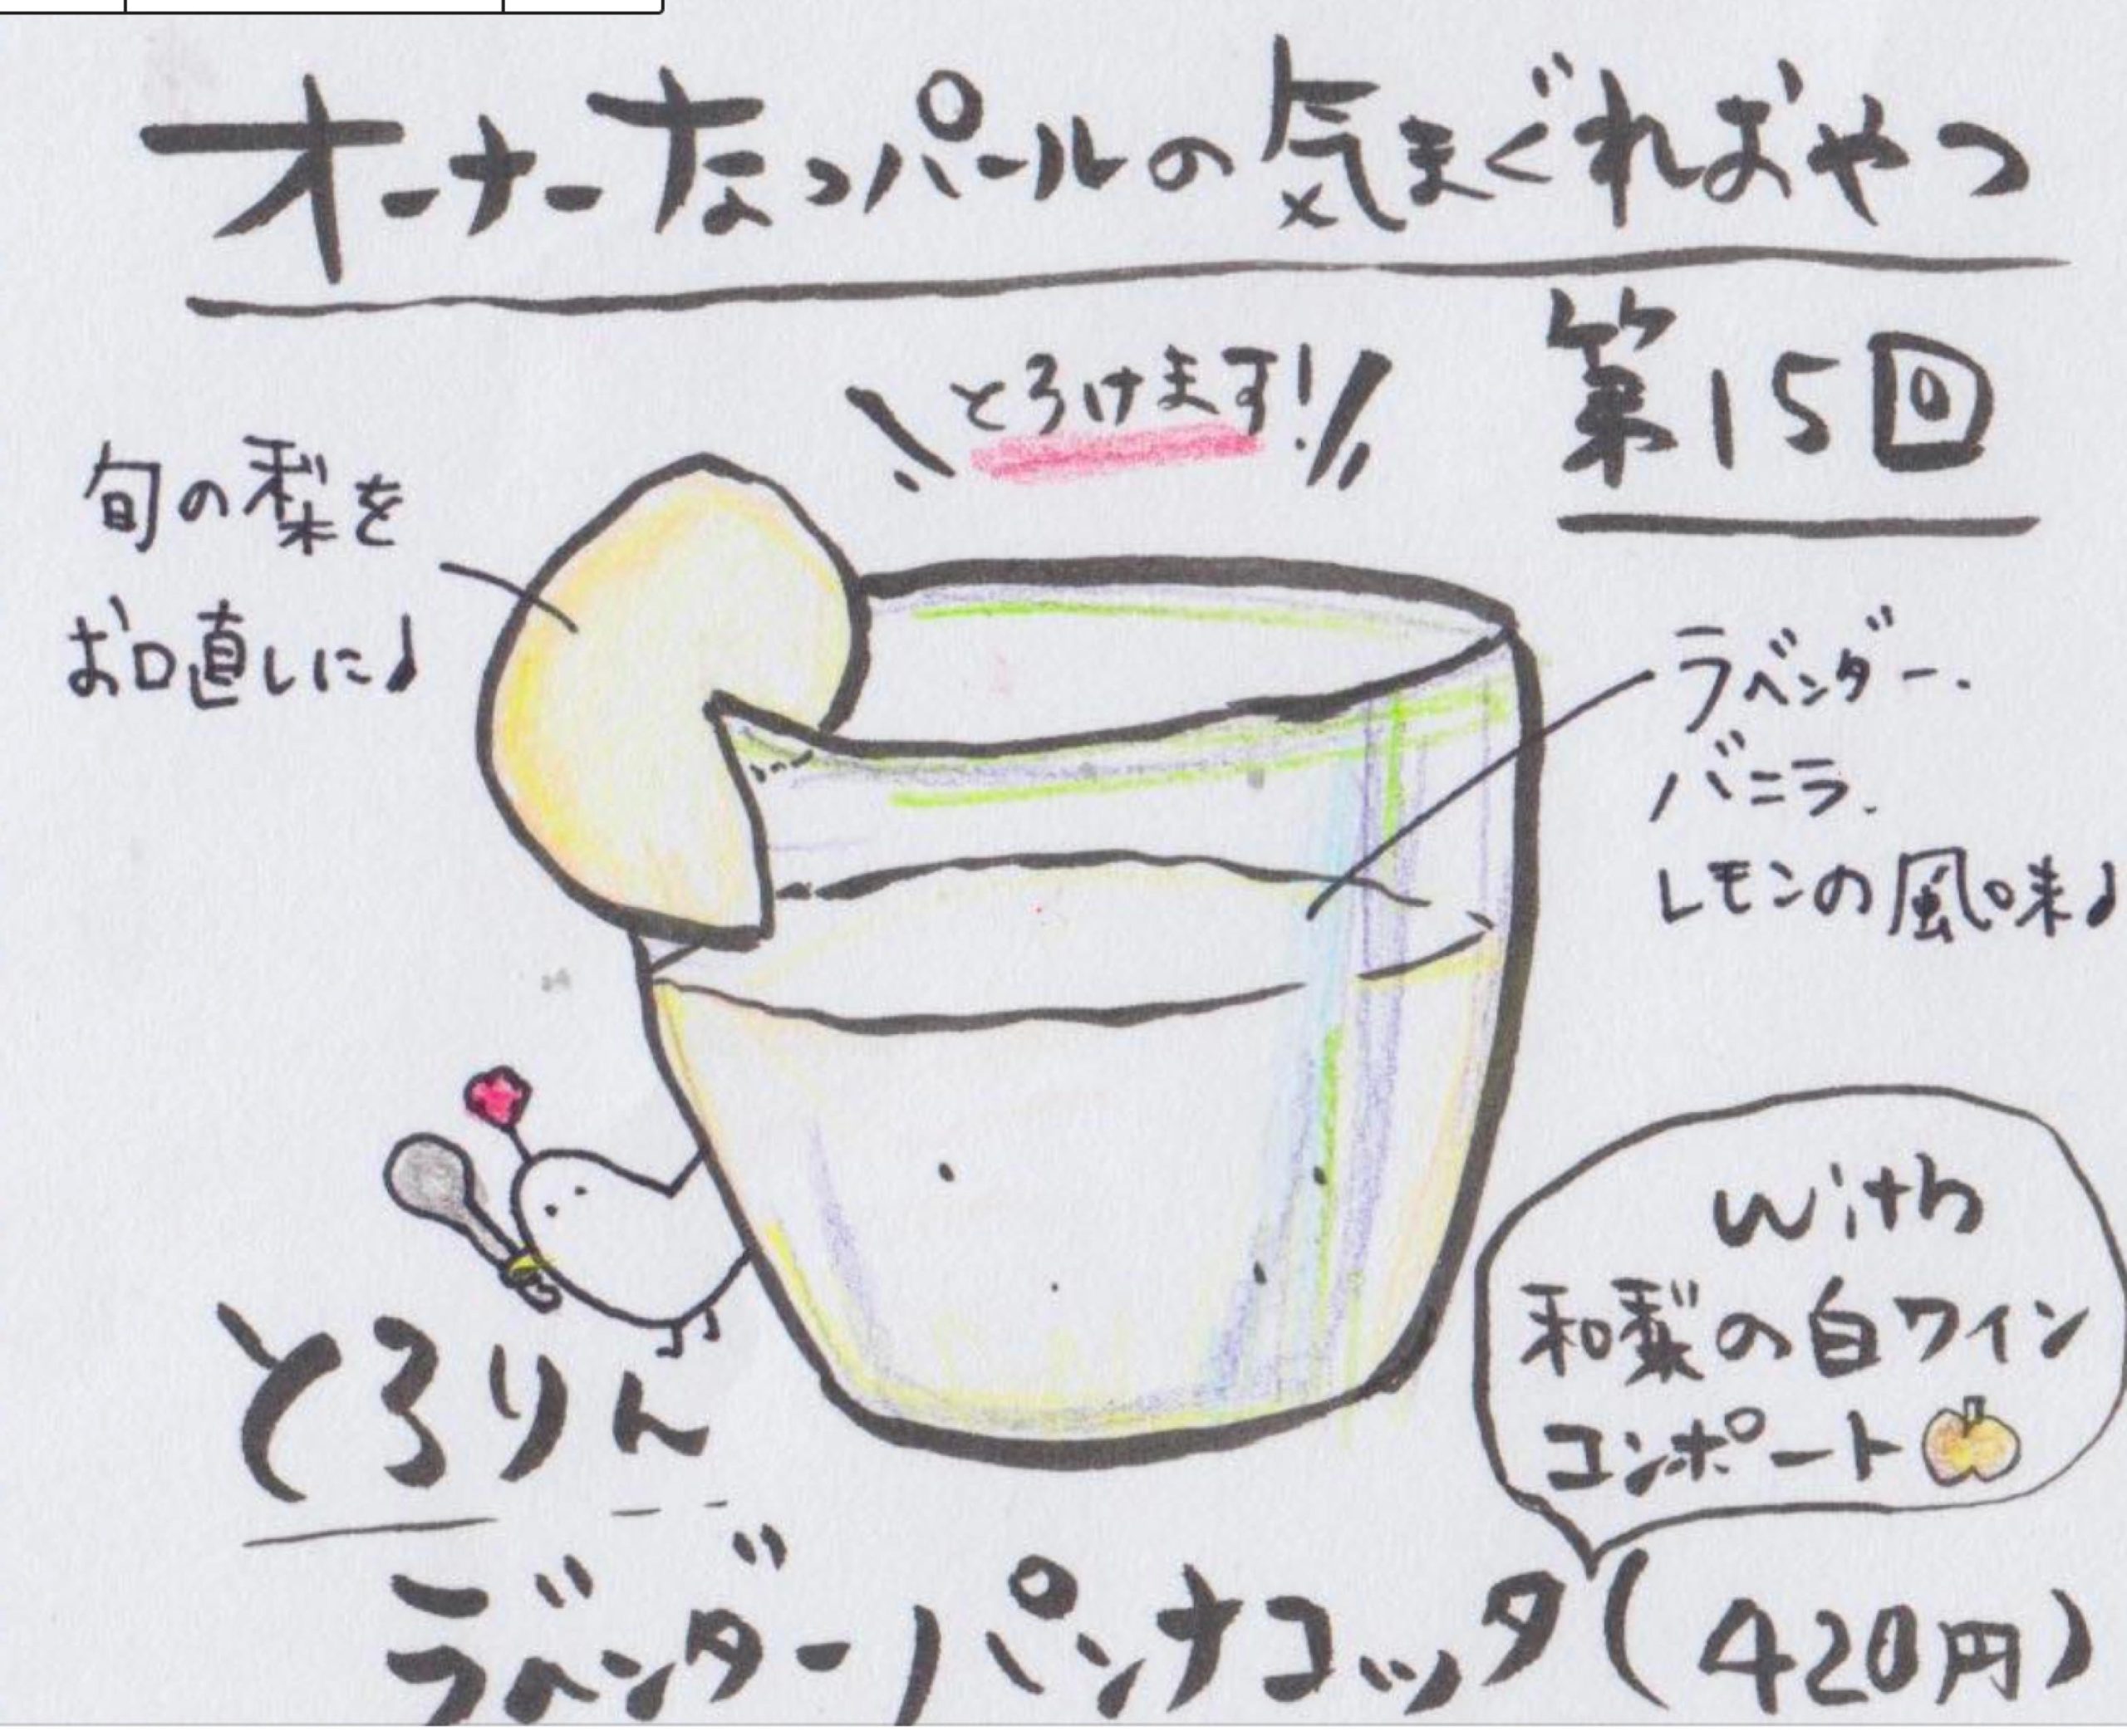 オーナーなっパールの気まぐれおやつ
第15回
とろけます!!
旬の梨を
お口直しに♪
ラベンダー、
バニラ、
レモンの風味♪
with
和梨の白ワイン
コンポート
とろりん
ラベンダーパンナコッタ(420円)